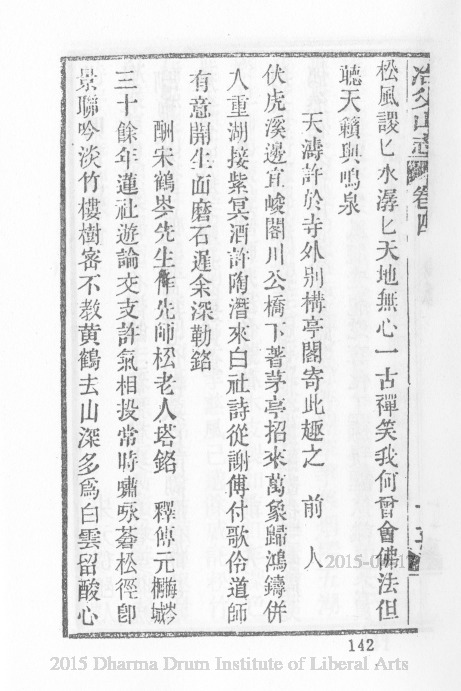 冶父山志 卷四
松風謖匕水潺匕天地無心一古禪笑我何曾會佛法但
聽天籟與鳴泉
天濤許於寺外別構亭閣寄此趣之 前人
伏虎溪邊宜峻閣川公橋下著茅亭招來萬象歸鴻鑄併
入重湖接紫冥酒許陶潛來白社詩從謝傅付歌伶道師
有意開生面磨石遲余深勒銘
酬宋鶴岑先生作先師松老人塔銘 釋傳元
三十餘年蓮社遊論交支許氣相投常時嘯咏蒼松徑卽
景聯吟淡竹樓樹密不教黃鶴去山深多為白雲留酸心
142
2015 Dharma Drum Institute of Liberal Arts